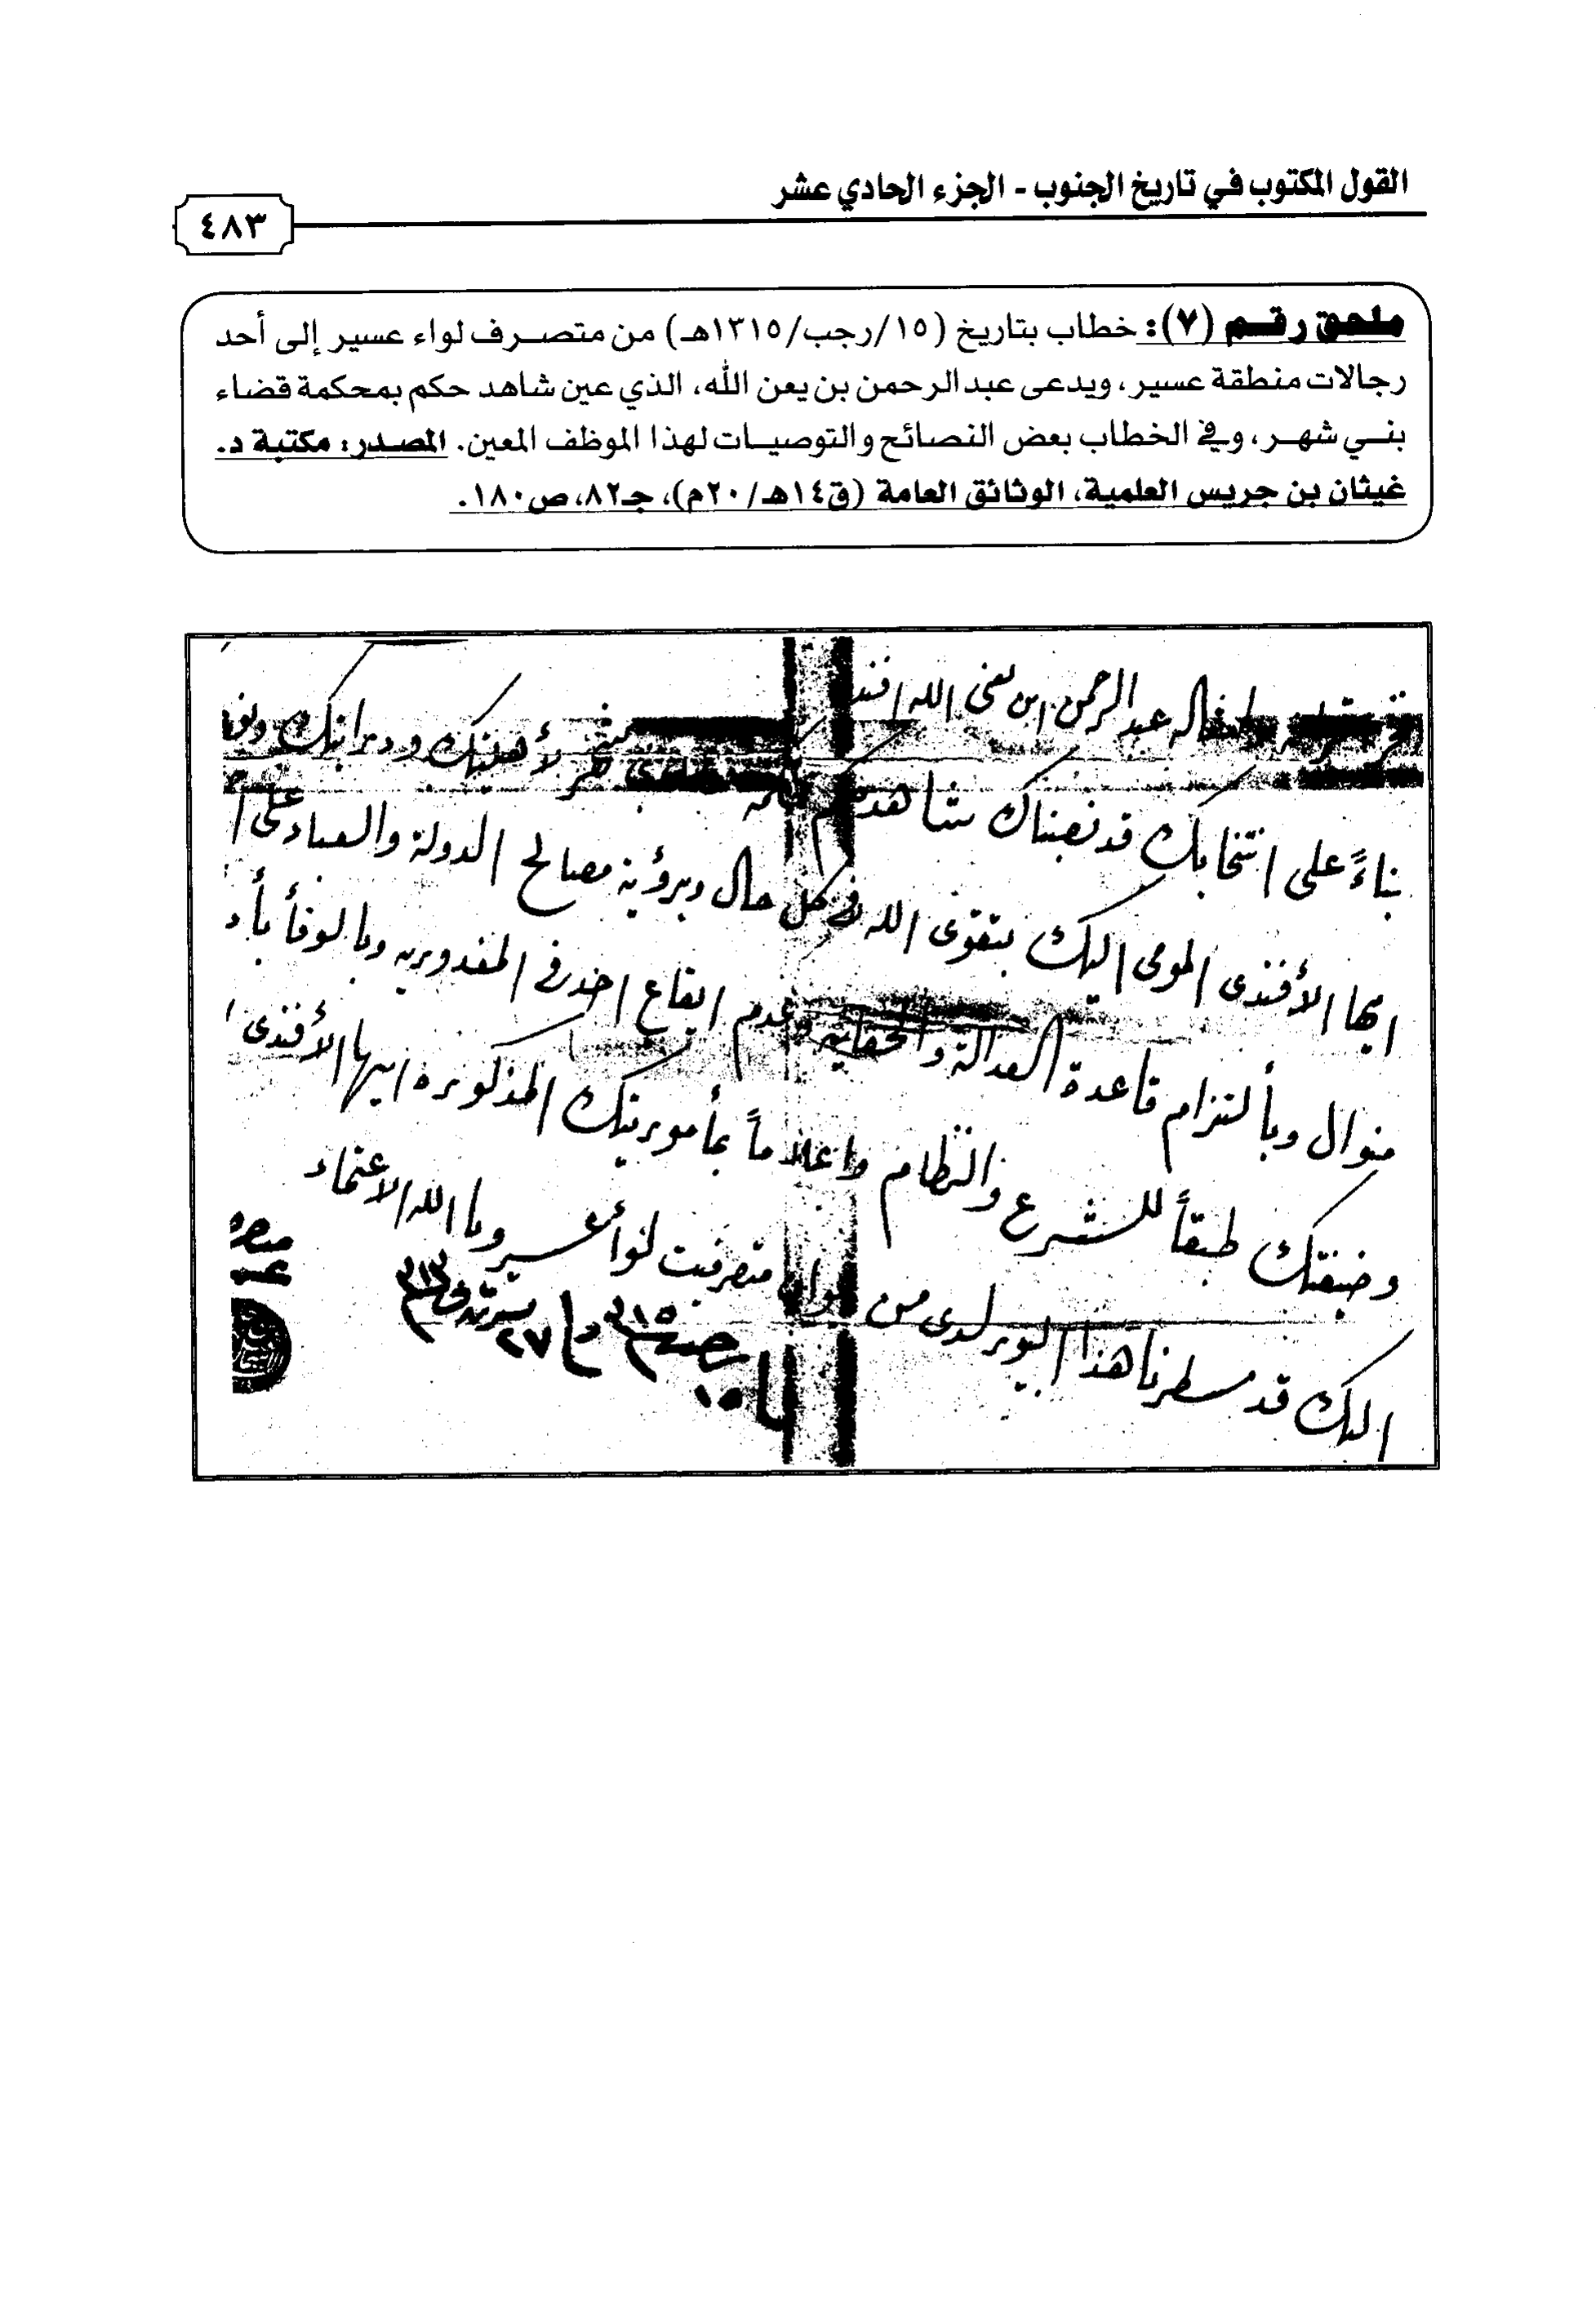 القول المكتوب في تاريخ الجنوب - الجزء الحادي عشر
٤٨٣
ملحق رقم (٧): خطاب بتاريخ (١٥/رجب/١٣١٥هـ) من متصرف لواء عسير إلى أحد
رجالات منطقة عسير، ويدعى عبدالرحمن بن يعن الله، الذي عين شاهد حكم بمحكمة قضاء
بني شهر، وفي الخطاب بعض النصائح والتوصيات لهذا الموظف المعين. المصدر: مكتبة د.
غيثان بن جريس العلمية، الوثائق العامة (ق١٤هـ/٢٠م)، جـ٨٢، ص١٨٠.
عبدالرحمن ابن يعن الله افند
بناءً على انتخابك قد نصبناك شاهد لأهليتك ودرايتك
ايها الأفندى المومى اليك بتقوى الله في كل حال وبرؤية مصالح الدولة والعباد على
منوال وبألتزام قاعدة العدالة والحقانيه وعدم ايقاع احد في المغدوريه وبالوفأ بأد
وضيفتك طبقاً للشرع والنظام واعلاماً بمأموريتك المذكوره ايها الأفندى
اليك قد سطرنا هذا البيورلدى من متصرفيت لوأ عسير وبالله الاعتماد
١٥ ٣١٥ ٢٧ ٣١٣